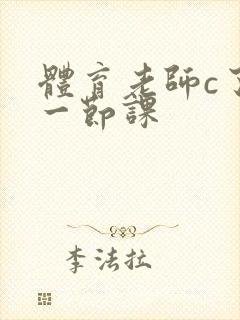 體育老師c了
一節課
李法拉